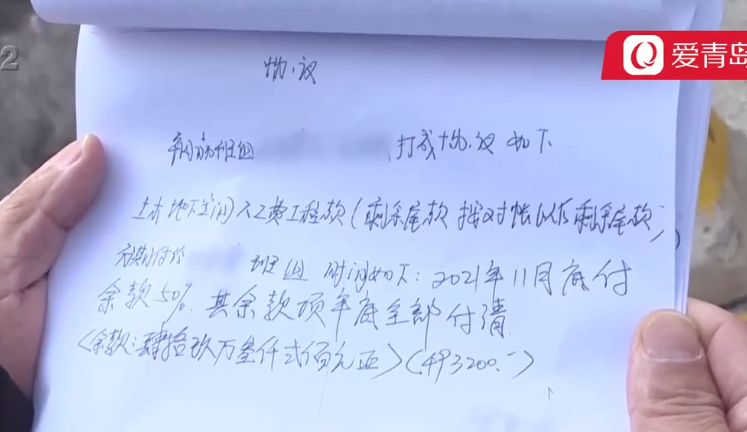 2
爱青岛
协议
钢筋班组 打成协议如下
土木地下空间人工费工程款(剩余尾款按对帐以后剩余尾款)
班组 时间如下:2021年11月底付
余款50% 其余款项年底全部付清
(余款:肆拾玖万叁仟贰佰元正)(493200.-)